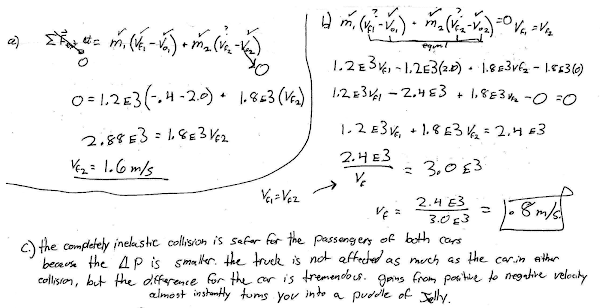 a) ΣF_ext Δt = m₁(V_f1 - V_o1) + m₂(V_f2 - V_o2)
0
0
0 = 1.2E3(-.4 - 2.0) + 1.8E3(V_f2)
2.88E3 = 1.8E3 V_f2
V_f2 = 1.6 m/s
b) m₁(V_f1 - V_o1) + m₂(V_f2 - V_o2) = 0 V_f1 = V_f2
equal
1.2E3V_f1 - 1.2E3(2.0) + 1.8E3V_f2 - 1.8E3(0)
1.2E3V_f1 - 2.4E3 + 1.8E3V_f2 - 0 = 0
1.2E3V_f1 + 1.8E3V_f2 = 2.4E3
V_f1 = V_f2 → 2.4E3 / V_f = 3.0E3
V_f = 2.4E3 / 3.0E3 = .8 m/s
c.) the completely inelastic collision is safer for the passengers of both cars
because the ΔP is smaller. the truck is not affected as much as the car in either
collision, but the difference for the car is tremendous. going from positive to negative velocity
almost instantly turns you into a puddle of Jelly.